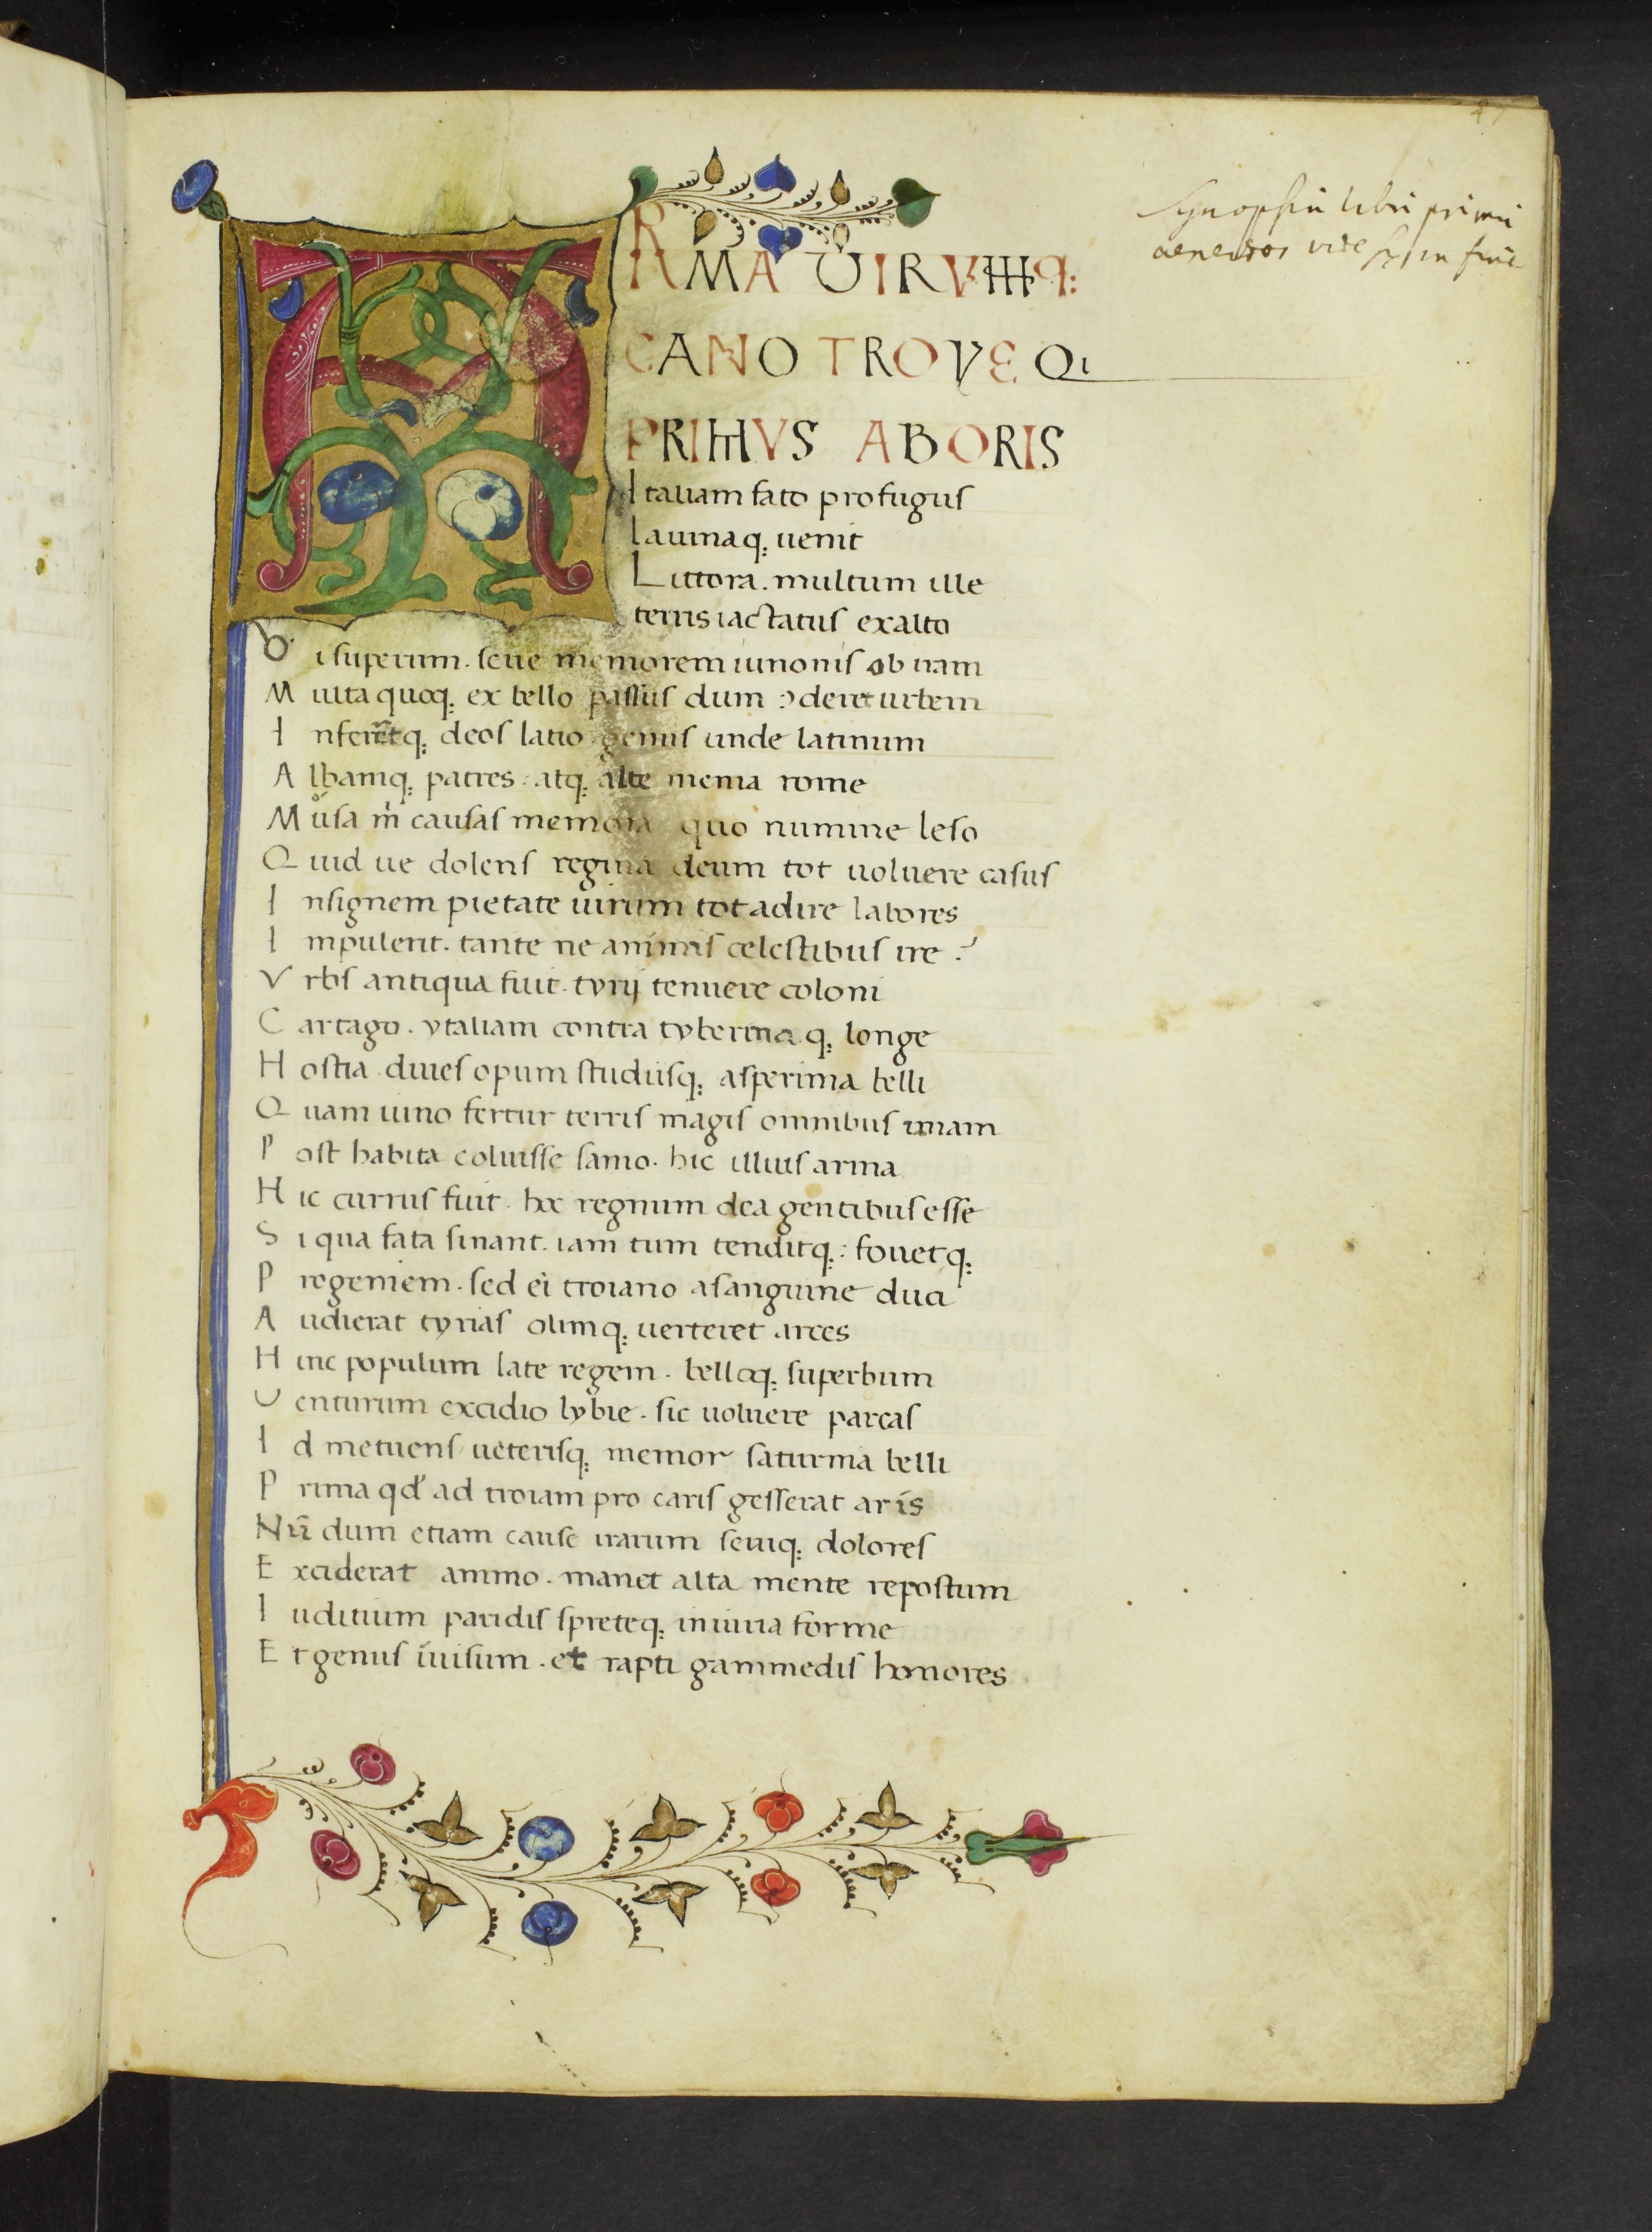 ARMA VIRVMq:
CANO TROYE Qi
PRIMVS AB ORIS
Italiam fato profugus
lauinaq; uenit
Littora. multum ille
terris iactatus exalto
Vi superum. seue memorem iunonis ob iram
Multa quoq; ex bello passus dum ↄderet urbem
Inferretq; deos latio genus unde latinum
Albamq; patres. atq; alte menia rome
Musa m̓ causas memora quo numine leso
Quid ue dolens regina deum tot uoluere casus
Insignem pietate uirum tot adire labores
Impulerit. tante ne animis celestibus ire?
Vrbs antiqua fuit. tyrij tenuere coloni
Cartago. ytaliam contra tyberinaq; longe
Hostia. diues opum studiisq; asperima belli
Quam iuno fertur terris magis omnibus unam
Post habita coluisse samo. hic illius arma
Hic currus fuit. hoc regnum dea gentibus esse
Si qua fata sinant. iam tum tenditq; fouetq;
Progeniem. sed ei troiano a sanguine duci
Audierat tyrias olimq; uerteret arces
Hinc populum late regem. belloq; superbum
Venturum excidio lybie. sic uoluere parcas
Id metuens ueterisq; memor saturnia belli
Prima qđ ad troiam pro caris gesserat aris
Nū dum etiam cause irarum seuiq; dolores
Exciderat animo. manet alta mente repostum
Iuditium paridis spreteq; iniuria forme
Et genus īuisum. et rapti ganimedis honores
Synopsin libri primi
aeneidos vide in fine